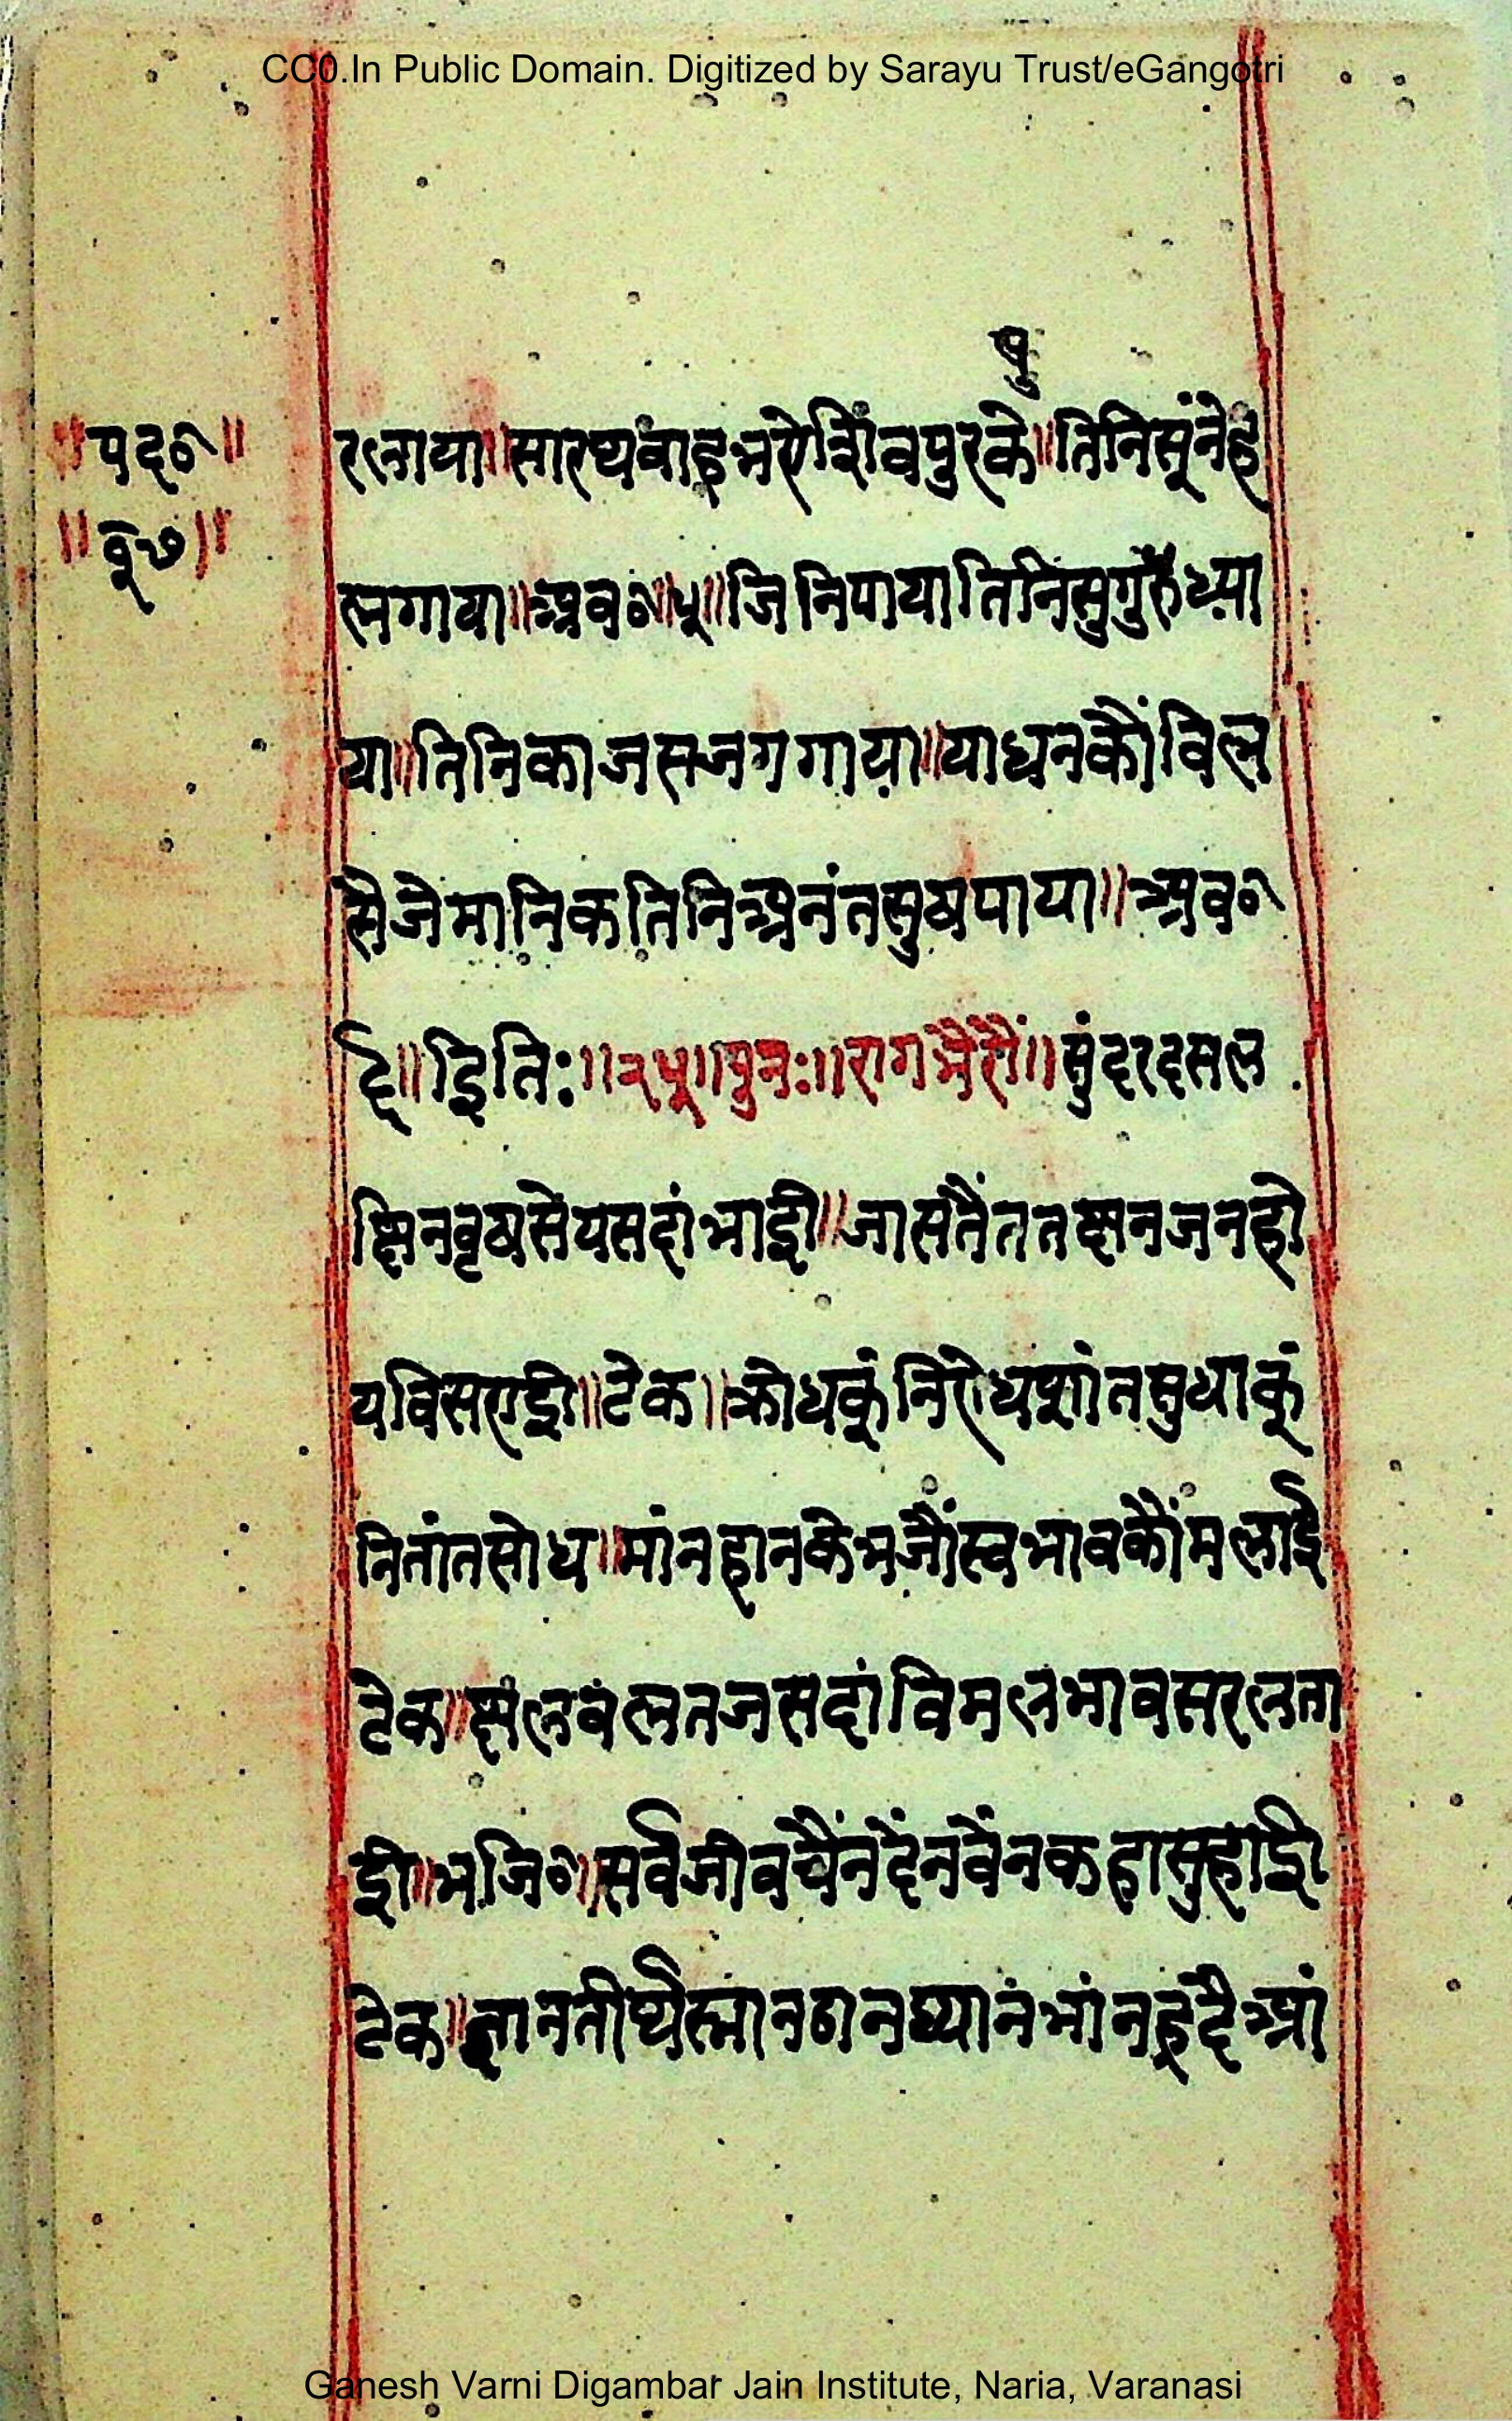 CC0.In Public Domain. Digitized by Sarayu Trust/eGangotri
पु
॥पद०॥
॥बू७॥
रलाया॥सारथवाहभरोशिवपुरके॥तिनिसूंनेह
लगाया॥अब०॥५॥जिनिपायातिनिसुगुरुध्या
या॥तिनिकाजसजगगाया॥याधनकौंविल
सेजेमानिकतिनिअनंतसुखपाया॥अब०
६॥इतिः॥२५॥पुनः॥रागभैरौं॥सुंदरदसल
छिनवृषसेयसदांभाई॥जासतैंततछनजनहो
यविसराई॥टेक॥क्रोधकूंनिरोधशांतसुधाकूं
नितांतसोध॥मांनहानकेभजौंस्वभावकौंमलाई
टेक॥छलबलतजसदांविमलभावसरलता
ई॥भजि०॥सर्वजीवचैंनदैंनवैंनकहासुहाई
टेक॥ज्ञानतीर्थस्नानठानध्यानभांनहृदैआं
Ganesh Varni Digambar Jain Institute, Naria, Varanasi